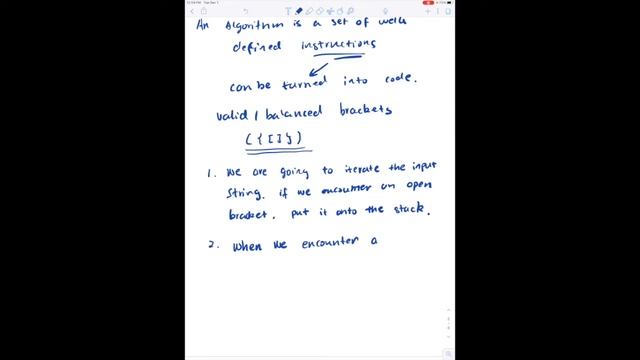 An Algorithm is a set of well
defined instructions
can be turned into code.
valid / balanced brackets
( { [ ] } )
1. We are going to iterate the input
string. if we encounter an open
bracket. put it onto the stack.
2. When we encounter a